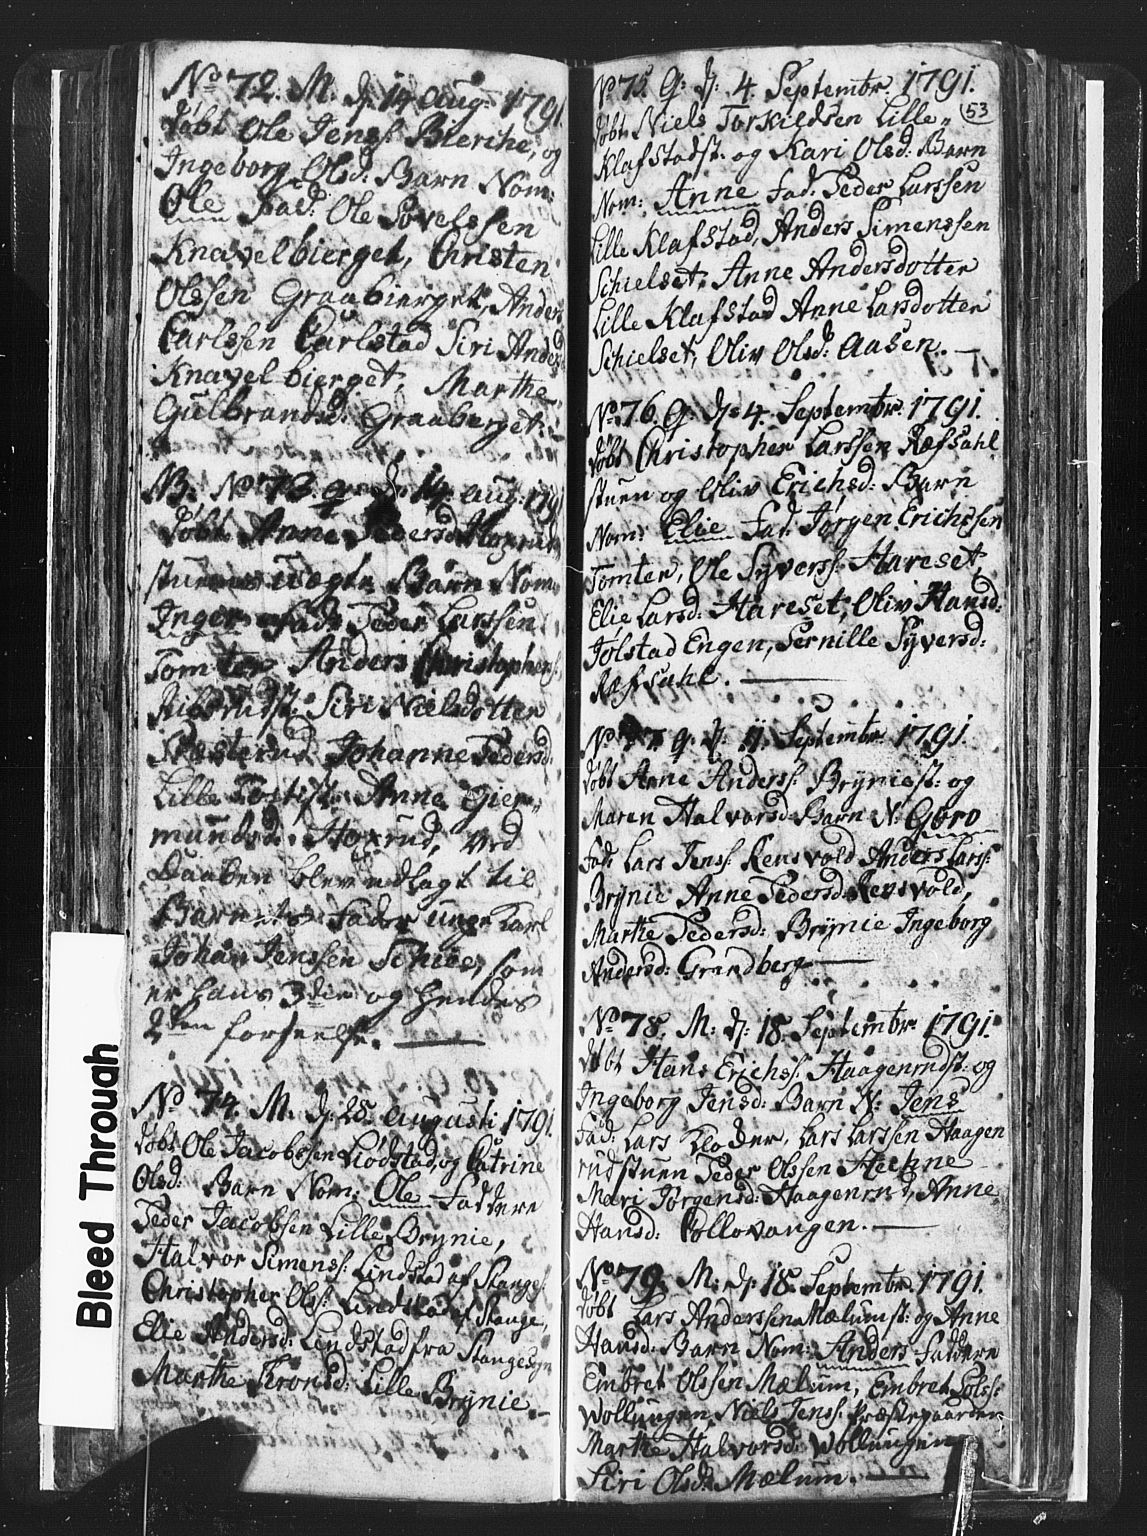 No 72. M. d: 14 Aug: 1791.
døbt Ole Jens: Bierche, og
Ingeborg Olsd: Barn Nom:
Ole Fad: Ole Povelssen
Knavelbierget, Christen
Olssen Graabierget, Anders
Carlssen Carlstad Siri Anders
Knavelbierget, Marthe
Gulbrandsd: Graaberget.
NB. No 73. q d: 14. Aug: 1791
døbt Anne Pedersd Hoxrud
stuens uægte Barn Nom:
Inger Fad: Peder Larssen
Tomter Anders Christophers:
Ribsrudst: Siri Nielsdotter
Johanne Pedersd:
Lille Anne Gier„
mundsd: Hoxrud, ved
Daaben blev udlagt til
Barnets Fader unge Karl
Johan Jenssen Schiee, som
er hans 3die og hendes
2den forseelse.
No 74. M. d: 28 Augusti 1791.
døbt Ole Jacobssen Liødstad, og Catrine
Olsd: Barn Nom: Ole Faddere
Peder Jacobsen Lille Brynie,
Halvor Simens: Lindstad af Stange
Christopher Ols: Lindstad af Stange,
Elie Andersd: Lindstad fra Stangesogn
Marthe Thronsd: Lille Brynie.
No 75. Q: d: 4. Septembr. 1791.
53
døbt Niels Torkildsen Lille„
Klafstadst: og Kari Olsd: Barn
Nom: Anne Fad: Peder Larssen
Lille Klafstad, Anders Simenssen
Schielset, Anne Andersdotter
Lille Klafstad Anne Larsdotter
Schielset, Oliv Olsd: Aasen.
No 76. Q. d: 4. Septembr. 1791.
døbt Christopher Larssen Ræfsahl
stuen og Oliv Erichsd: Barn
Nom: Elie Fad: Jørgen Erichssen
Tomter, Ole Syvers: Hareset,
Elie Larsd: Hareset, Oliv Hansd:
Jølstad Engen, Pernille Syversd:
Ræfsahl.
No 77. q. d. 11. Septembr. 1791.
døbt Arne Anders: Bryniest: og
Maren Halvorsd: Barn N: Goro
Fad: Lars Jens: Rensvold Anders Lars:
Brynie Anne Pedersd: Rensvold,
Marthe Pedersd: Brynie Ingeborg
Andersd: Grundberg
No 78. M: d: 18. Septembr. 1791.
døbt Hans Erichs: Haagenrudst: og
Ingeborg Jensd: Barn N: Jens
Fad: Lars Kloder, Lars Larssen Haagen
rudstuen Peder Olssen Heckne
Mari Jørgensd: Haagenrud, Anne
Hansd: Pollovangen.
No 79. M: d: 18. Septembr. 1791.
døbt Lars Anderssen Mælumst: og Anne
Hansd: Barn Nom: Anders Faddere
Embret Olssen Mælum, Embret Ols:
Wollungen, Niels Jens: Præstegaarden
Marthe Halvorsd: Wollungen
Siri Olsd: Mælum.
Bleed Through